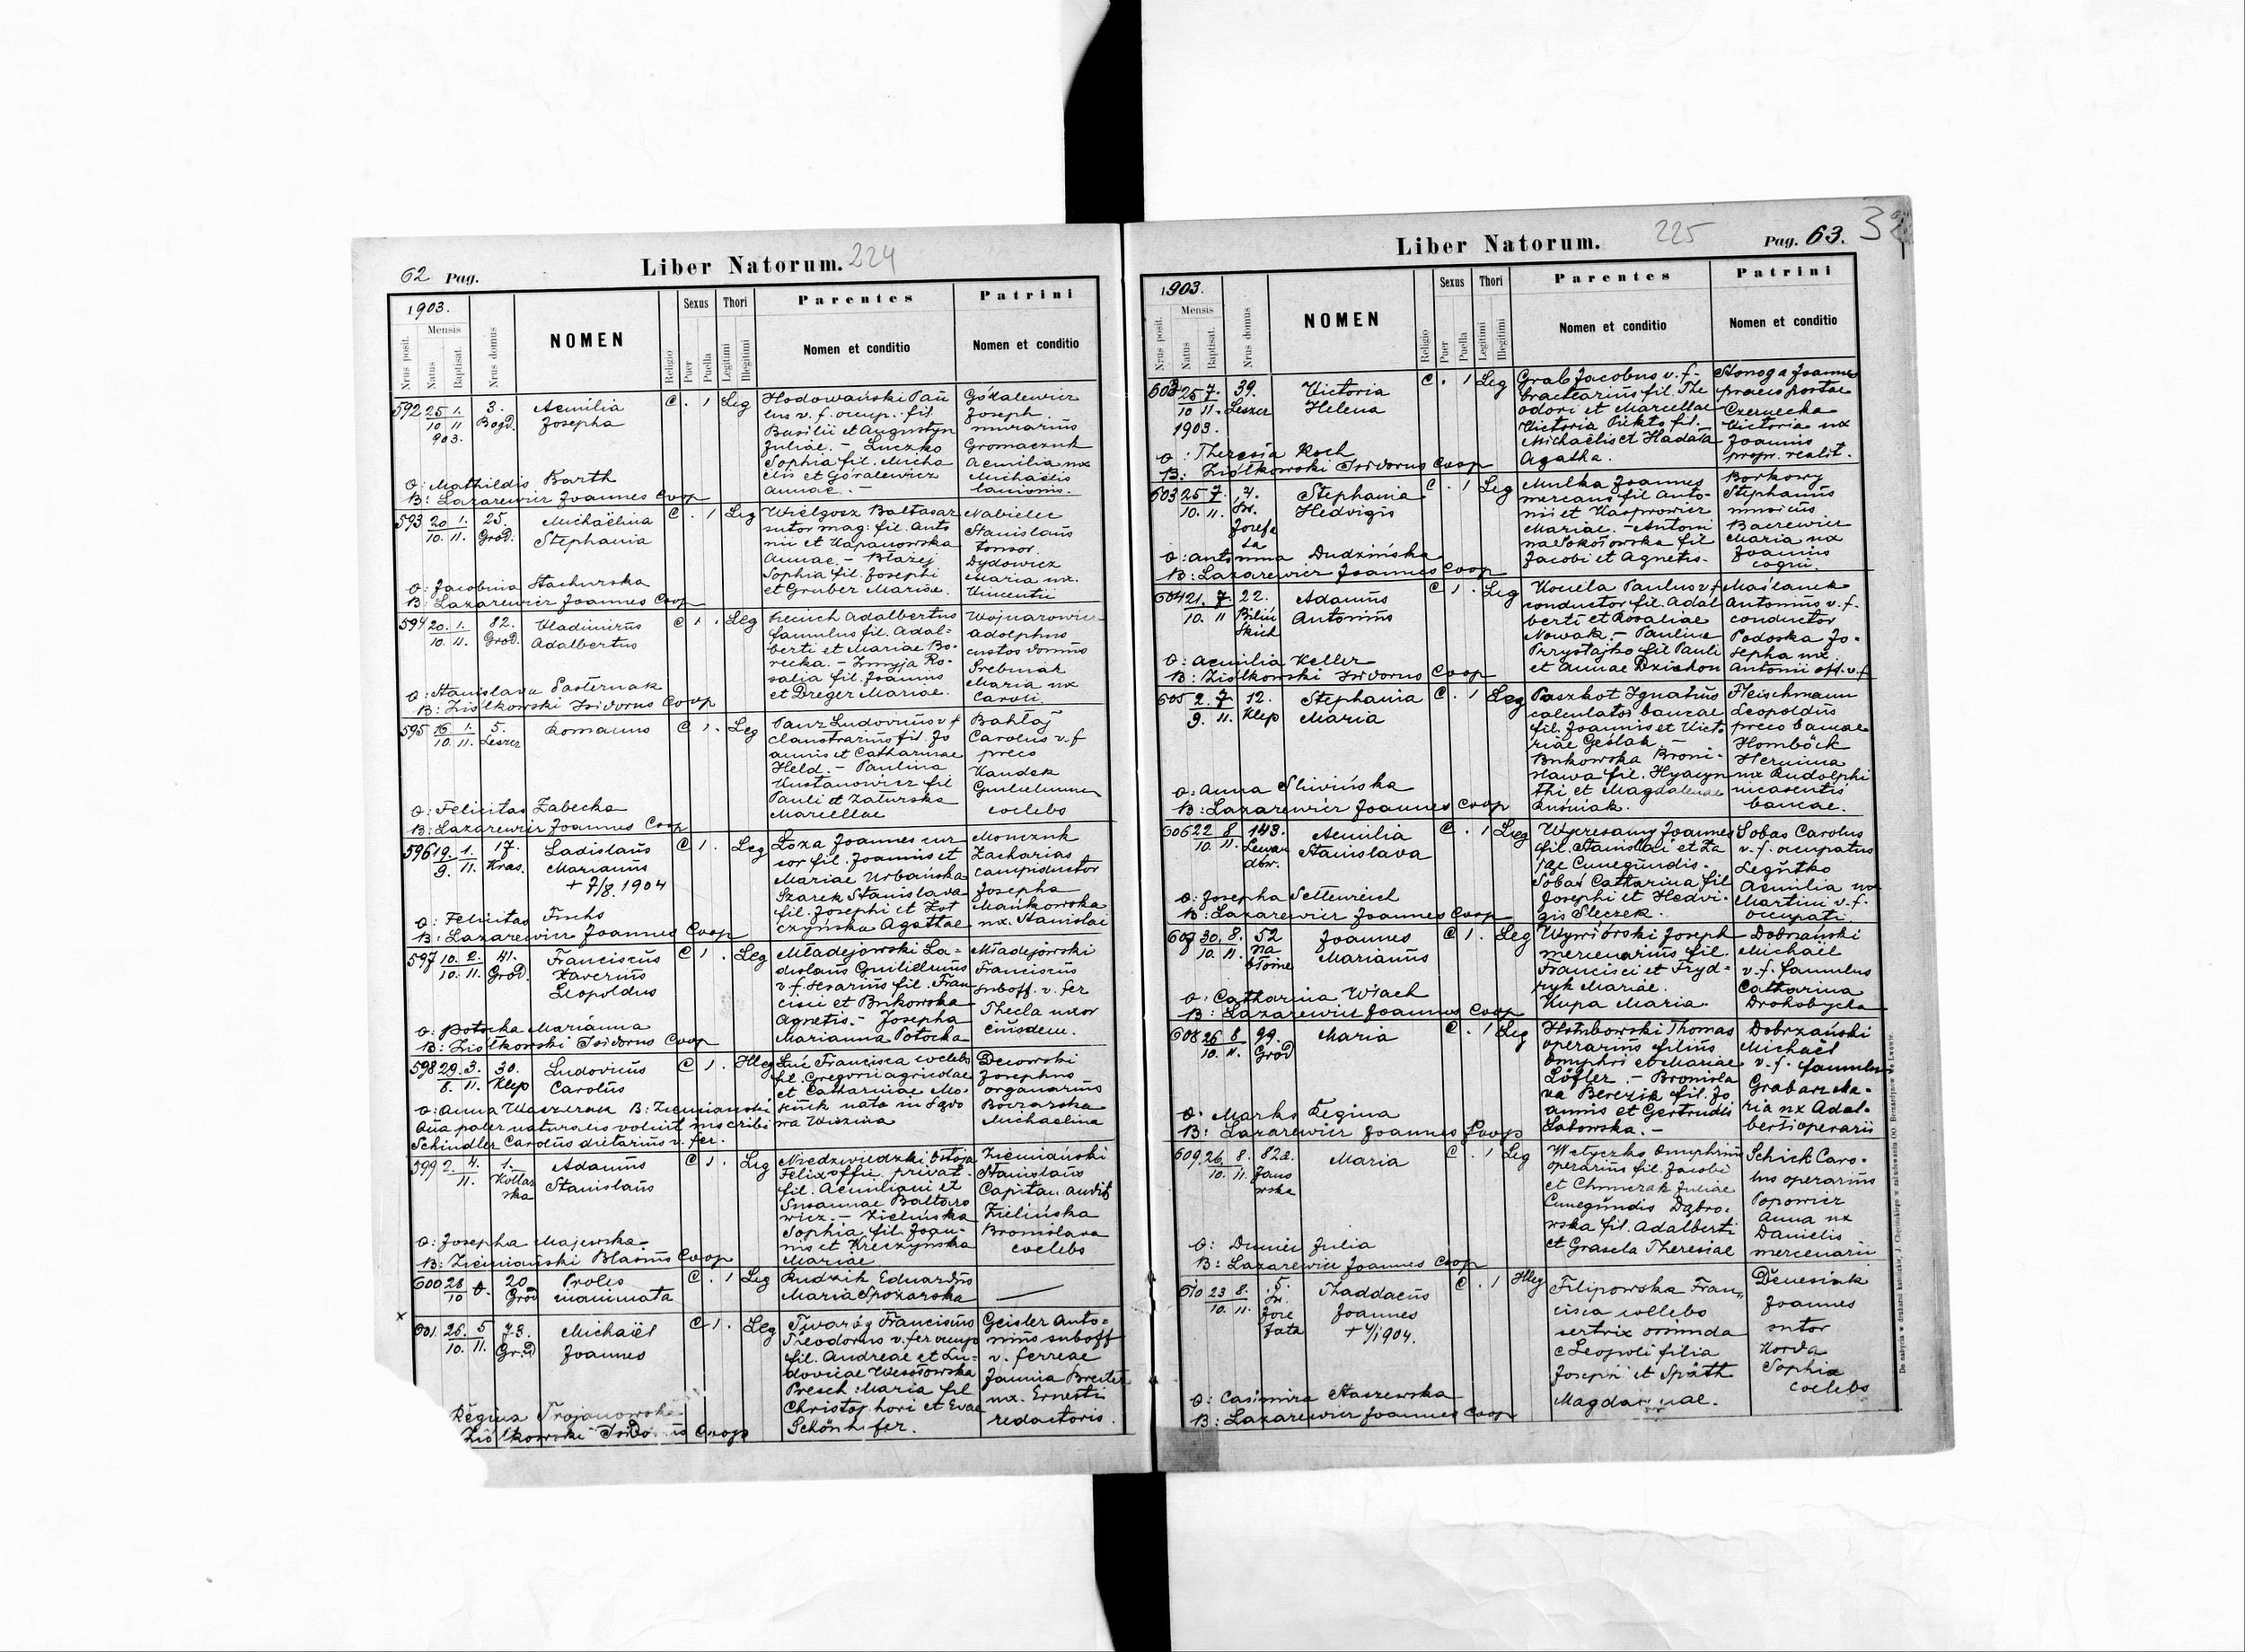 62 Pag.
Liber Natorum. 224
1903.
Nrus posit.
Mensis
Natus
Baptisat.
Nrus domus
NOMEN
Religio
Sexus
Puer
Puella
Thori
Legitimi
Illegitimi
Parentes
Nomen et conditio
Patrini
Nomen et conditio
592 25/10 1./11 903.
3. Bogd.
Aemilia
Josepha
C . 1 Leg
Hodowański Pau
lus v. f. occup. fil.
Basilii et Augustyn
Juliae. – Luczko
Sophia fil. Micha
elis et Góralewicz
Annae. –
Góralewicz
Joseph.
murarius
Gromaczuk
Aemilia ux
Michaëlis
lanionis.
O: Mathildis Barth
B: Lazarewicz Joannes Coop
593 20/10. 1./11.
25. Grod.
Michaëlina
Stephania
C . 1 Leg
Wielgosz Baltasar
sutor mag. fil. Anto
nii et Kapanowska
Annae. – Błazej
Sophia fil. Josephi
et Gruber Mariae.
Nabielec
Stanislaus
tonsor.
Dydowicz
Maria ux.
Vincentii
O: Jacobina Stachurska
B: Lazarewicz Joannes Coop
594 20./10. 1./11.
82. Grod.
Vladimirus
Adalbertus
C 1 . Leg
Adalbertus
famulus fil. Adal=
berti et Mariae Bo-
recka. – Zmyja Ro-
salia fil. Joannis
et Dreger Mariae.
Adolphus
custos domus
Srebniak
Maria ux
Caroli.
O: Stanislava Pasternak
B: Ziółkowski Isidorus Coop
595 16/10. 1./11.
5. Leszcz
Romanus
C 1 . Leg
Panz Ludovicus v f
claustrarius fil. Jo
annis et Catharinae
Held. – Paulina
Kustanowicz fil
Pauli et Zaturska
Marcellae
Bahłaj
Carolus v. f
preco
Kandek
Guilielmus
coelebs
O: Felicitas Zabecka
B: Lazarewicz Joannes Coop
596 19./9. 1./11.
17. Kras.
Ladislaus
Marianus
+ 7/8 1904
C 1 . Leg
Łoza Joannes cur
sor fil. Joannis et
Mariae Urbańska
Szarek Stanislava
fil. Josephi et Zot
czyńska Agathae
Monczuk
Zacharias
campiductor
Josepha
Mańkowska
ux. Stanislai
O: Felicitas Fuchs
B: Lazarewicz Joannes Coop
597 10./10. 2./11.
41. Grod
Franciscus
Xaverius
Leopoldus
C 1 . Leg
Mładejowski La=
dislaus Guilielmus
v f. fil. Fran
cisci et Bukowska
Agnetis. – Josepha
Marianna Potocka
Mładejowski
Franciscus
suboff. v. fer
Thecla uxor
ejusdem.
O: Potocka Marianna
B: Ziółkowski Isidorus Coop
598 29./8. 3./11.
30. Klep
Ludovicus
Carolus
C 1 . Illeg
Łuć Francisca coelebs
fil. Gregorii agricolae
et Catharinae Mo-
seńuk nata in Sądo
wa Wisznia
Decowski
Josephus
organarius
Boczarska
Michaelina
O: Anna Waszeran B: Ziemiański
Qua pater naturalis voluit inscribi
Schindler Carolus dietarius v. fer.
599 2. 4./11.
1. Kołłar ska
Adamus
Stanislaus
C 1 . Leg
Niedzwiedzki Ostoja
Felix offic. privat.
fil. Aemiliani et
Susannae Baltaro
wicz. – Zielińska
Sophia fil. Joan-
nis et Kreczyńska
Mariae
Ziemiański
Stanislaus
Capitan. audit
Zielińska
Bronislava
coelebs
O: Josepha Majewska
B: Ziemiański Blasius Coop
600 28/10 0.
20 Grod
Proles
inanimata
C . 1 Leg
Rudzik Eduardus
Maria Spożarska
x
601. 26./10. 5/11.
73. Grod
Michaël
Joannes
C 1 . Leg
Twaróg Franciscus
Teodorus v. fer occup
fil. Andreae et Lu-
dovicae Wesołowska
Presch Maria fil
Christophori et Evae
Schönhofer.
Geisler Anto=
nius suboff
v. ferreae
Jannia Breiter
ux. Ernesti
redactoris.
Regina Trojanowska
Ziółkowski Isidorus Coop
Liber Natorum. 225
Pag. 63.
1903.
Nrus posit.
Mensis
Natus
Baptisat.
Nrus domus
NOMEN
Religio
Sexus
Puer
Puella
Thori
Legitimi
Illegitimi
Parentes
Nomen et conditio
Patrini
Nomen et conditio
25/10 7./11. 1903.
39. Leszcz
Victoria
Helena
C . 1 Leg
Grab Jacobus v. f.
tractearius fil. The
odori et Marcellae
Victoria Piekto fil.
Michaëlis et Hadała
Agatha.
Stonoga Joannes
praeco portae
Czernecka
Victoria ux
Joannis
propr. realit.
O: Theresia Koch
B: Ziółkowski Isidorus Coop
603 25/10. 7./11.
4. Św. Jozefa ta
Stephania
Hedvigis
C . 1 Leg
Mulka Joannes
mercans fil Anto-
nii et Kasprowicz
Mariae. – Antoni
na Sokołowska fil
Jacobi et Agnetis.
Borkowy
Stephanus
musicus
Bacrewicz
Maria ux
Joannis
cogni.
O: Antonina Dudzińska
B: Lazarewicz Joannes Coop
604 21./10. 7./11
22. Biliń skich
Adamus
Antonius
C 1 . Leg
Koniela Paulus v. f
conductor fil. Adal
berti et Rosaliae
Nowak. – Paulina
Przystajko fil Pauli
et Annae Dziekon
Maślanek
Antonius v. f.
conductor
Podoska Jo-
sepha ux
Antonii off. v. f
O: Aemilia Keller
B: Ziółkowski Isidorus Coop
605 2./9. 7/11.
12. Klep
Stephania
Maria
C . 1 Leg
Paszkot Ignatius
calculator bancae
fil. Joannis et Victo
riae Geslak –
Bukowska Broni-
slawa fil. Hyacyn
thi et Magdalenae
Kuśniak.
Fleischmann
Leopoldus
preco bancae
Homböck
Hermina
ux Rudolphi
incasentis
bancae.
O: Anna Sliwińska
B: Lazarewicz Joannes Coop
606 22/10. 8/11.
143. Lewan dów.
Aemilia
Stanislava
C . 1 Leg
Wyczesany Joannes
fil. Stanislai et Za
jąc Cunegundis.
Sobas Catharina fil
Josephi et Hedvi-
gis Sleczek.
Sobas Carolus
v. f. occupatus
Legutko
Aemilia ux
Martini v. f.
occupati.
O: Josepha Settenreich
B: Lazarewicz Joannes Coop
607 30./10. 8./11.
52 na błonie
Joannes
Marianus
C 1 . Leg
Wywiórski Joseph
mercenarius fil.
Francisci et Fryd=
ryk Mariae.
Kupa Maria
Dobrzański
Michaël
v. f. famulus
Catharina
Drohobycka
O: Catharina Wrach
B: Lazarewicz Joannes Coop
608 26/10. 8/11.
99. Grod
Maria
C . 1 Leg
Hołubowski Thomas
operarius filius
Onuphri et Mariae
Löfler. – Bronisla
va Berezik fil. Jo
annis et Gertrudis
Labowska. –
Dobrzański
Michaël
v. f. famulus
Grabarz Ma-
ria ux Adal-
berti operarii
O: Marko Regina
B: Lazarewicz Joannes Coop
609. 26/10. 8./11.
822. Jano wska
Maria
C . 1 Leg
Wełyczko Onuphrius
operarius fil. Jacobi
et Chmurzak Juliae
Cunegundis Dąbro-
wska fil. Adalberti
et Grasela Theresiae
Schick Caro-
lus operarius
Popowicz
Anna ux
Danielis
mercenarii
O: Duniec Julia
B: Lazarewicz Joannes Coop
610 23/10. 8./11.
5. Św. Joze fata
Thaddaeus
Joannes
+ 4/1 1904.
C . 1 Illeg
Filipowska Fran,
cisca coelebs
sertrix oriunda
e Leopoli filia
Josephi et Späth
Magdalenae.
Denesiuk
Joannes
sutor
Korda
Sophia
coelebs
O: Casimira Staszewska
B: Lazarewicz Joannes Coop
Do nabycia w drukarni katolickiej, J. Chęcińskiego w zabudowaniu OO. Bernardynów we Lwowie.